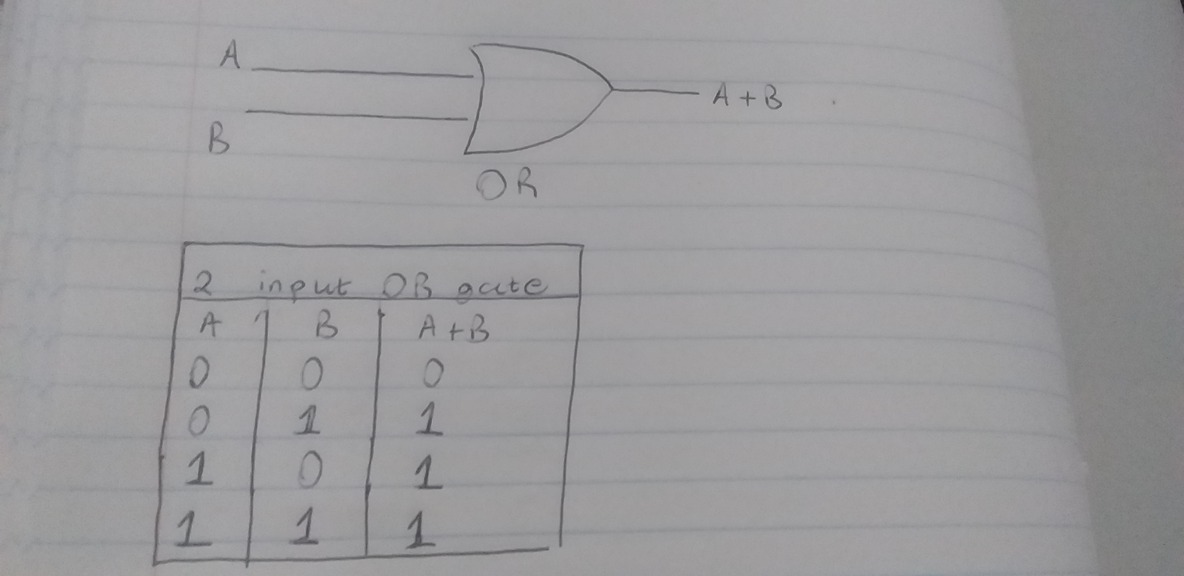 A
A+B
B
OR
2 input OR gate
A B A+B
0 0 0
0 1 1
1 0 1
1 1 1